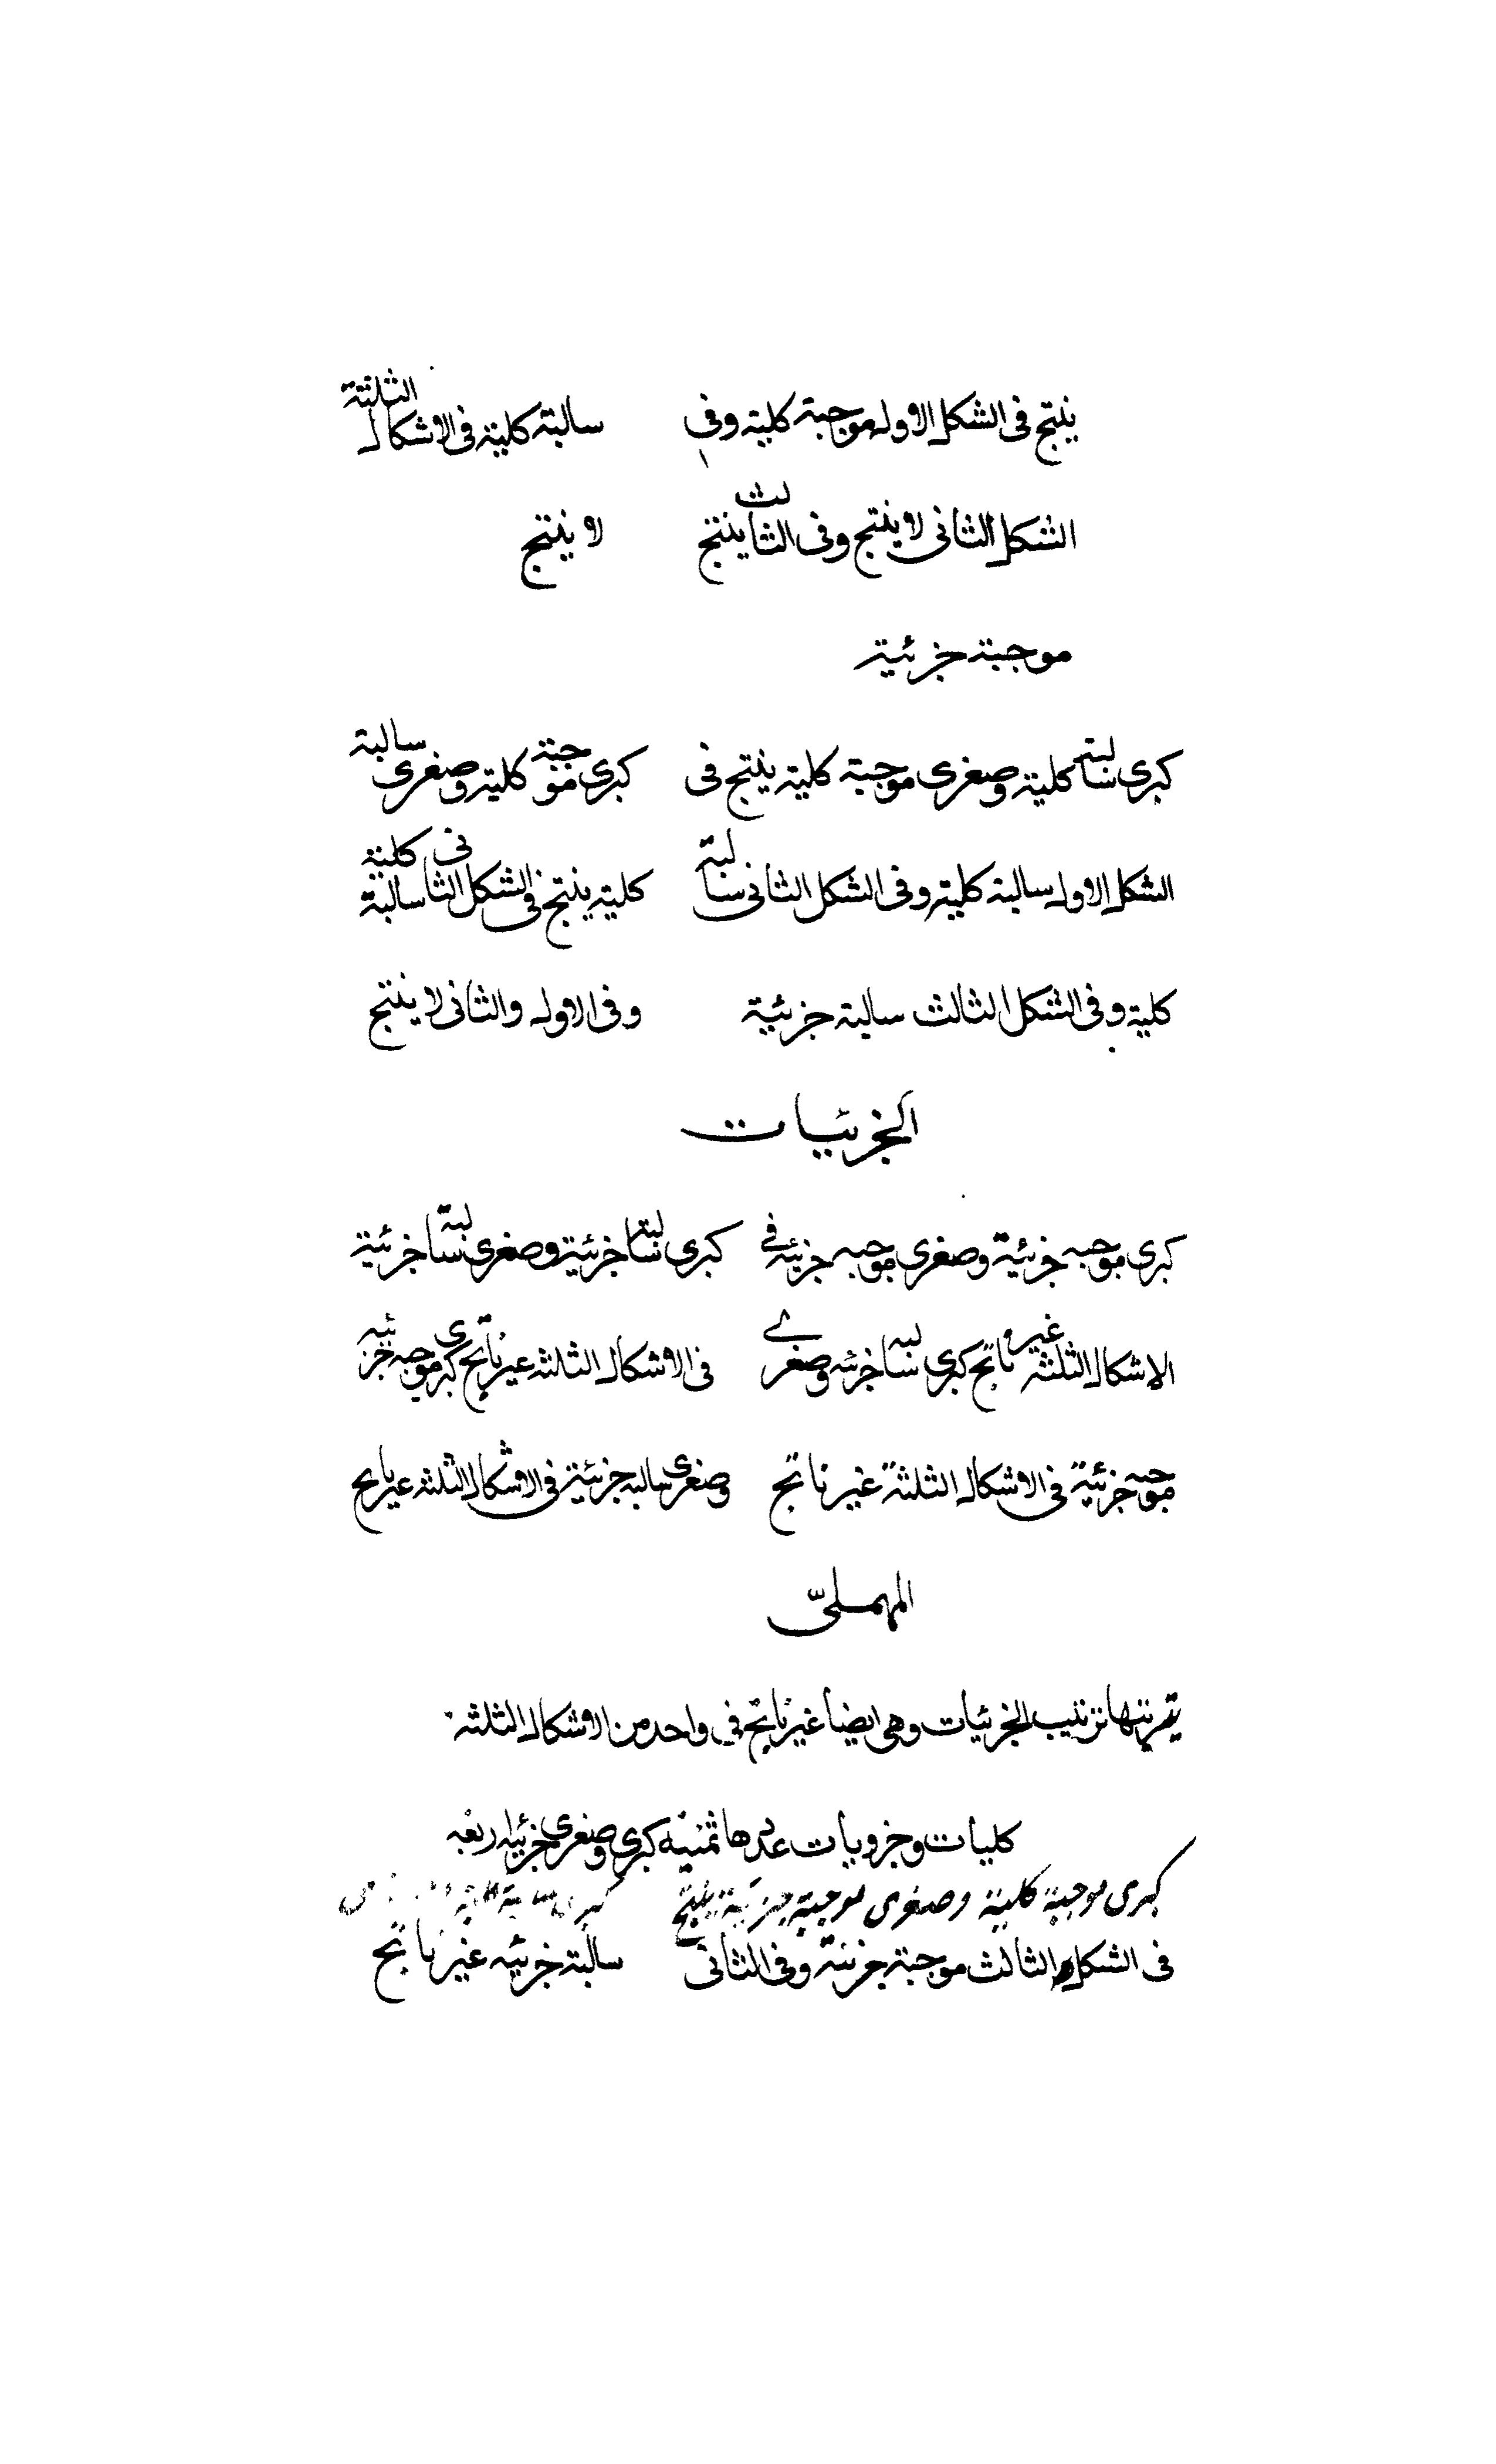 ينتج فى الشكل الاول موجبة كلية وفى سالبة كلية فى الاشكال الثلثة
الشكل الثانى لا ينتج وفى الثالث ينتج لا ينتج
موجبة جزئية
كبرى سالبة كلية وصغرى موجبة كلية ينتج فى كبرى موجبة كلية وصغرى سالبة
الشكل الاول سالبة كلية وفى الشكل الثانى سالبة كلية ينتج فى الشكل الثانى سالبة كلية
كلية وفى الشكل الثالث سالبة جزئية وفى الاول والثانى لا ينتج
الجزئيات
كبرى موجبه جزئية وصغرى موجبه جزئيه فى كبرى سالبة جزئية وصغرى سالبة جزئية
الاشكال الثلثة غير ناتج كبرى سالبه جزئه وصغرى فى الاشكال الثلثة غير ناتج كبرى موجبه جزئيه
موجبه جزئية فى الاشكال الثلثة غير ناتج وصغرى سالبه جزئية فى الاشكال الثلثه غير ناتج
ترتيب الجزئيات وهى ايضا غير ناتج فى واحد من الاشكال الثلثة
كليات وجزويات عددها ثمنية كبرى وصغرى جزئيه اربعه
كبرى موجبة كلية وصغرى موجبة جزئية ينتج
فى الشكل الثالث موجبة جزئية وفى الثانى سالبة جزئيه غير ناتج